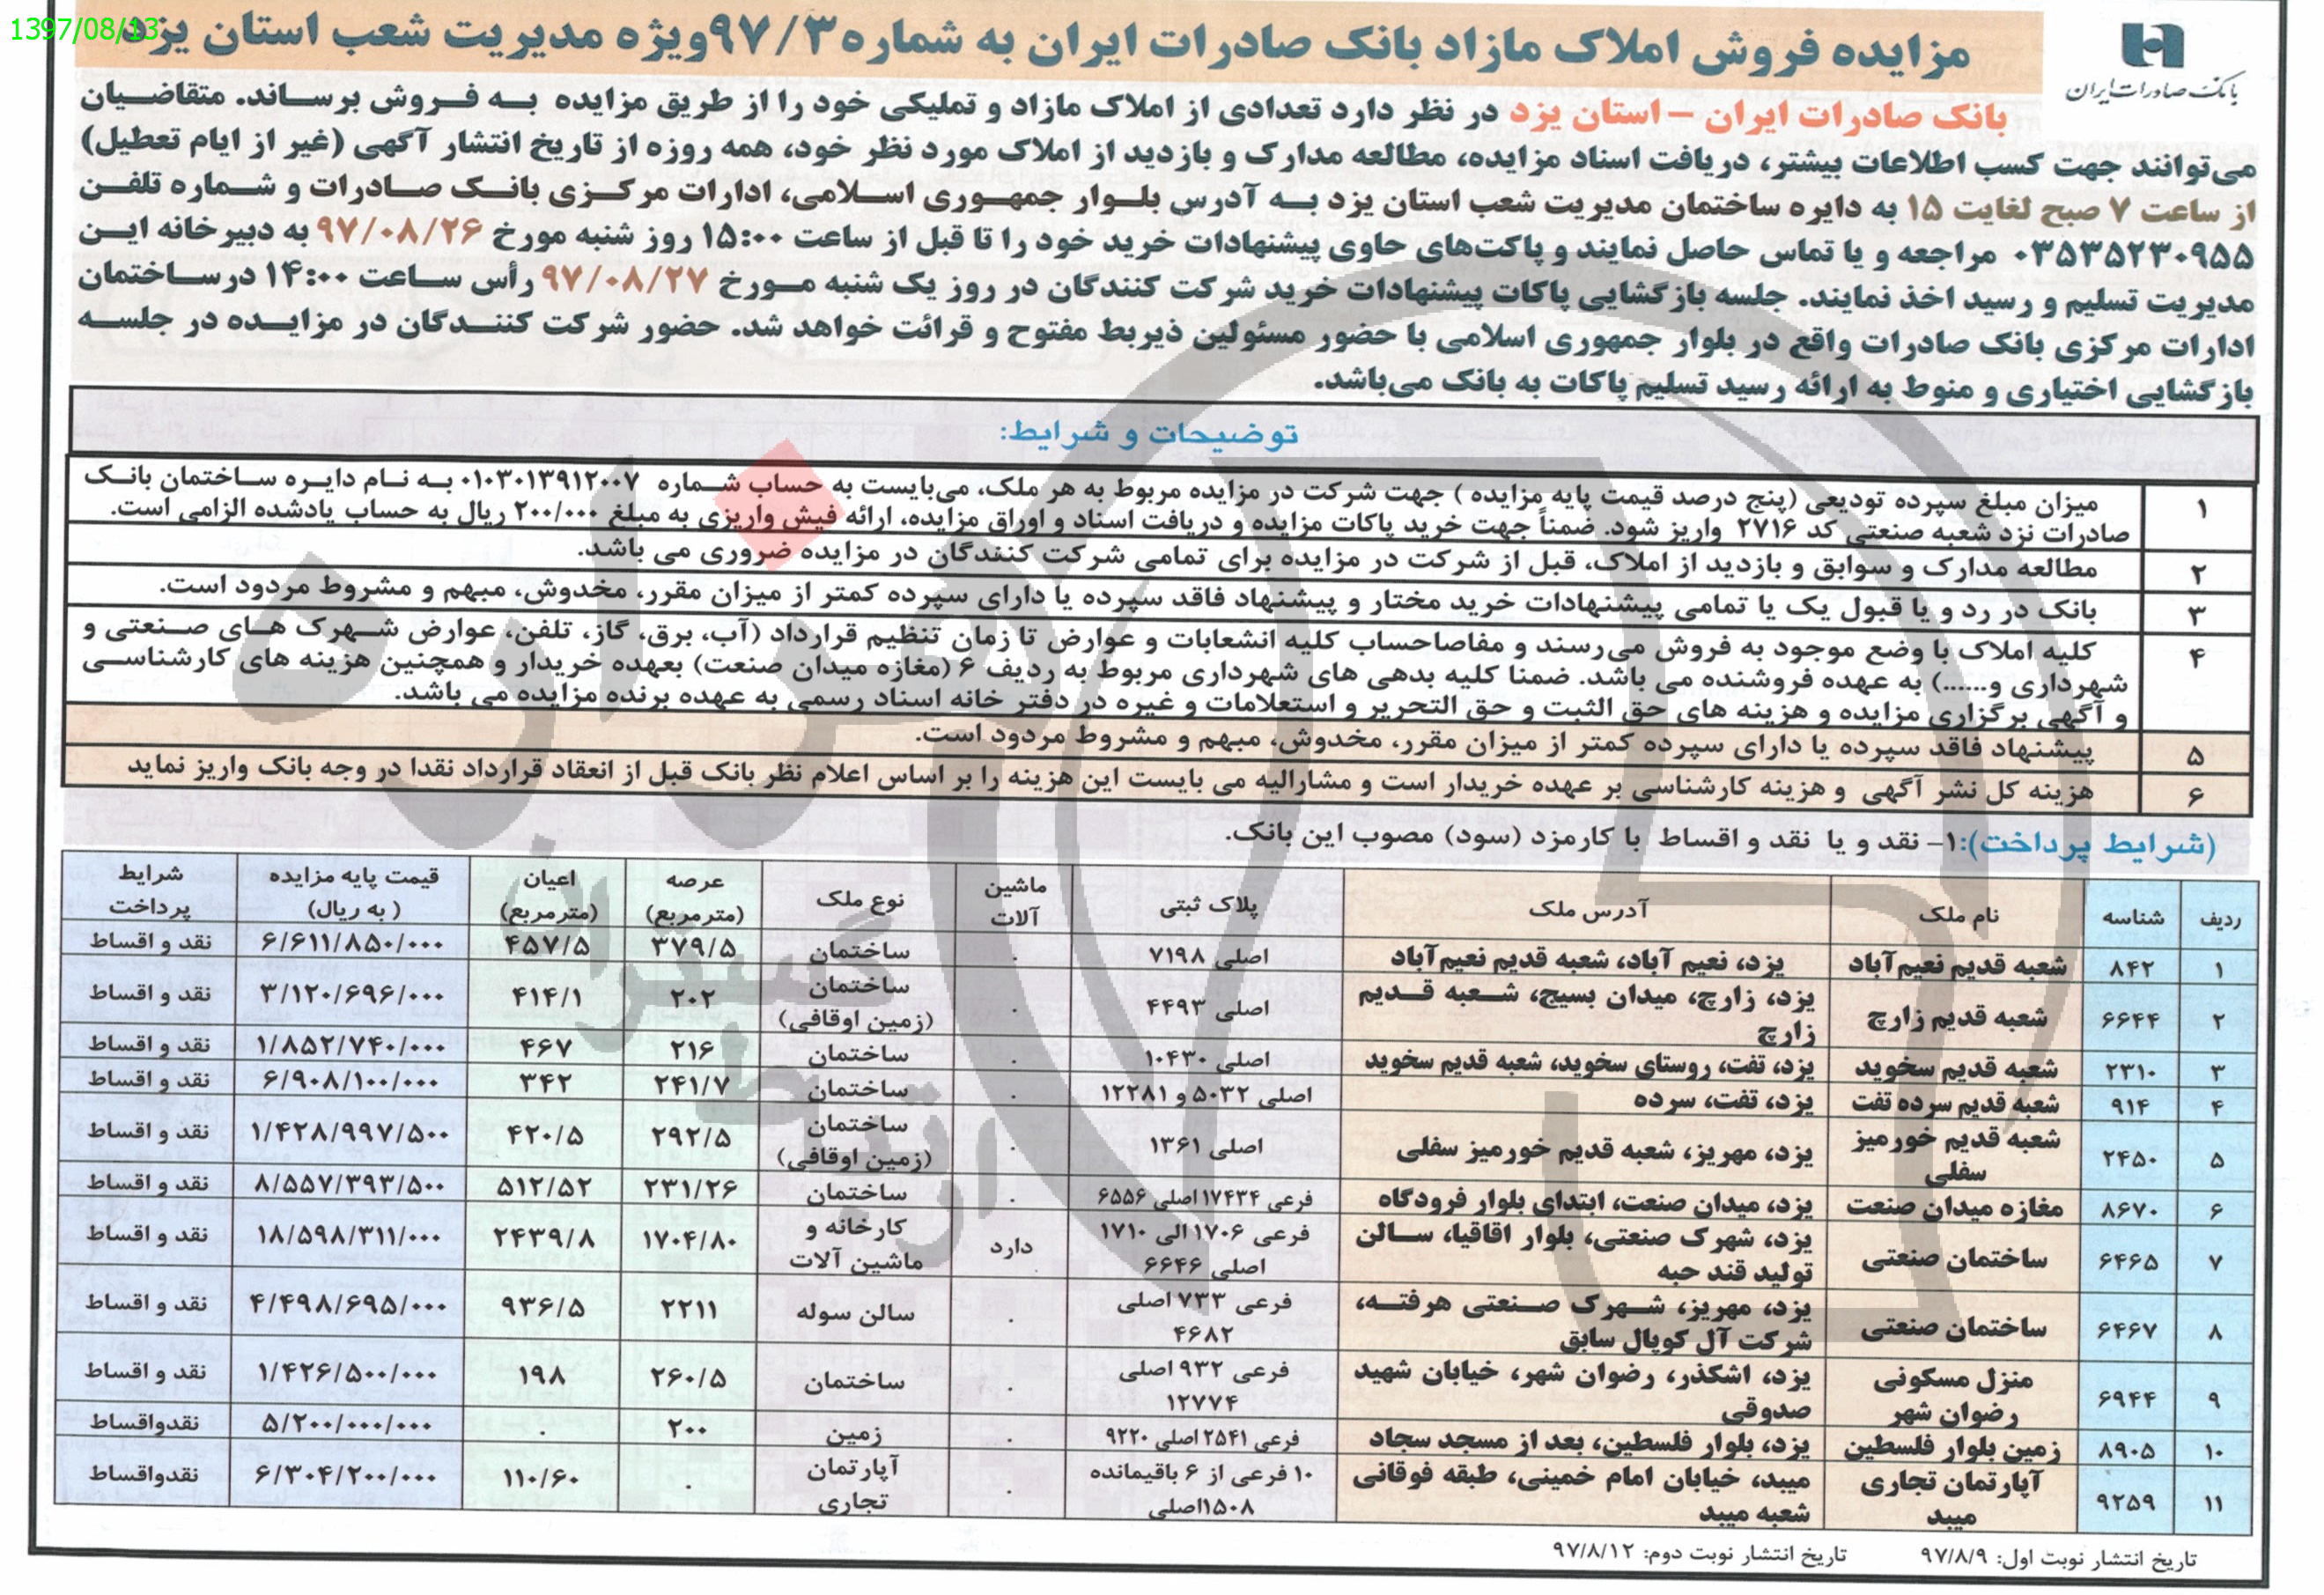 1397/08/13
مزایده فروش املاک مازاد بانک صادرات ایران به شماره ۹۷/۳ویژه مدیریت شعب استان یزد
بانک صادرات ایران
بانک صادرات ایران – استان یزد در نظر دارد تعدادی از املاک مازاد و تملیکی خود را از طریق مزایده به فروش برساند. متقاضیان
می‌توانند جهت کسب اطلاعات بیشتر، دریافت اسناد مزایده، مطالعه مدارک و بازدید از املاک مورد نظر خود، همه روزه از تاریخ انتشار آگهی (غیر از ایام تعطیل)
از ساعت ۷ صبح لغایت ۱۵ به دایره ساختمان مدیریت شعب استان یزد به آدرس بلوار جمهوری اسلامی، ادارات مرکزی بانک صادرات و شماره تلفن
۰۳۵۳۵۲۳۰۹۵۵ مراجعه و یا تماس حاصل نمایند و پاکت‌های حاوی پیشنهادات خرید خود را تا قبل از ساعت ۱۵:۰۰ روز شنبه مورخ ۹۷/۰۸/۲۶ به دبیرخانه این
مدیریت تسلیم و رسید اخذ نمایند. جلسه بازگشایی پاکات پیشنهادات خرید شرکت کنندگان در روز یک شنبه مورخ ۹۷/۰۸/۲۷ رأس ساعت ۱۴:۰۰ درساختمان
ادارات مرکزی بانک صادرات واقع در بلوار جمهوری اسلامی با حضور مسئولین ذیربط مفتوح و قرائت خواهد شد. حضور شرکت کنندگان در مزایده در جلسه
بازگشایی اختیاری و منوط به ارائه رسید تسلیم پاکات به بانک می‌باشد.
توضیحات و شرایط:
۱ میزان مبلغ سپرده تودیعی (پنج درصد قیمت پایه مزایده ) جهت شرکت در مزایده مربوط به هر ملک، می‌بایست به حساب شماره ۰۱۰۳۰۱۳۹۱۲۰۰۷ به نام دایره ساختمان بانک
صادرات نزد شعبه صنعتی کد ۲۷۱۶ واریز شود. ضمناً جهت خرید پاکات مزایده و دریافت اسناد و اوراق مزایده، ارائه فیش واریزی به مبلغ ۲۰۰/۰۰۰ ریال به حساب یادشده الزامی است.
۲ مطالعه مدارک و سوابق و بازدید از املاک، قبل از شرکت در مزایده برای تمامی شرکت کنندگان در مزایده ضروری می باشد.
۳ بانک در رد و یا قبول یک یا تمامی پیشنهادات خرید مختار و پیشنهاد فاقد سپرده یا دارای سپرده کمتر از میزان مقرر، مخدوش، مبهم و مشروط مردود است.
۴ کلیه املاک با وضع موجود به فروش می‌رسند و مفاصاحساب کلیه انشعابات و عوارض تا زمان تنظیم قرارداد (آب، برق، گاز، تلفن، عوارض شهرک های صنعتی و
شهرداری و......) به عهده فروشنده می باشد. ضمنا کلیه بدهی های شهرداری مربوط به ردیف ۶ (مغازه میدان صنعت) بعهده خریدار و همچنین هزینه های کارشناسی
و آگهی برگزاری مزایده و هزینه های حق الثبت و حق التحریر و استعلامات و غیره در دفتر خانه اسناد رسمی به عهده برنده مزایده می باشد.
۵ پیشنهاد فاقد سپرده یا دارای سپرده کمتر از میزان مقرر، مخدوش، مبهم و مشروط مردود است.
۶ هزینه کل نشر آگهی و هزینه کارشناسی بر عهده خریدار است و مشارالیه می بایست این هزینه را بر اساس اعلام نظر بانک قبل از انعقاد قرارداد نقدا در وجه بانک واریز نماید
(شرایط پرداخت):۱- نقد و یا نقد و اقساط با کارمزد (سود) مصوب این بانک.
ردیف شناسه نام ملک آدرس ملک پلاک ثبتی ماشین آلات نوع ملک عرصه (مترمربع) اعیان (مترمربع) قیمت پایه مزایده (به ریال) شرایط پرداخت
۱ ۸۴۲ شعبه قدیم نعیم‌آباد یزد، نعیم آباد، شعبه قدیم نعیم‌آباد ۷۱۹۸ اصلی ۰ ساختمان ۳۷۹/۵ ۴۵۷/۵ ۶/۶۱۱/۸۵۰/۰۰۰ نقد و اقساط
۲ ۶۶۴۴ شعبه قدیم زارچ یزد، زارچ، میدان بسیج، شعبه قدیم زارچ ۴۴۹۳ اصلی ۰ ساختمان (زمین اوقافی) ۲۰۲ ۴۱۴/۱ ۳/۱۲۰/۶۹۶/۰۰۰ نقد و اقساط
۳ ۲۳۱۰ شعبه قدیم سخوید یزد، تفت، روستای سخوید، شعبه قدیم سخوید ۱۰۴۳۰ اصلی ۰ ساختمان ۲۱۶ ۴۶۷ ۱/۸۵۲/۷۴۰/۰۰۰ نقد و اقساط
۴ ۹۱۴ شعبه قدیم سرده تفت یزد، تفت، سرده ۵۰۳۲ و ۱۲۲۸۱ اصلی ۰ ساختمان ۲۴۱/۷ ۳۴۲ ۶/۹۰۸/۱۰۰/۰۰۰ نقد و اقساط
۵ ۲۴۵۰ شعبه قدیم خورمیز سفلی یزد، مهریز، شعبه قدیم خورمیز سفلی ۱۳۶۱ اصلی ۰ ساختمان (زمین اوقافی) ۲۹۲/۵ ۴۲۰/۵ ۱/۴۲۸/۹۹۷/۵۰۰ نقد و اقساط
۶ ۸۶۷۰ مغازه میدان صنعت یزد، میدان صنعت، ابتدای بلوار فرودگاه ۱۷۴۳۴ فرعی ۶۵۵۶ اصلی ۰ ساختمان ۲۳۱/۲۶ ۵۱۲/۵۲ ۸/۵۵۷/۳۹۳/۵۰۰ نقد و اقساط
۷ ۶۴۶۵ ساختمان صنعتی یزد، شهرک صنعتی، بلوار اقاقیا، سالن تولید قند حبه ۱۷۰۶ الی ۱۷۱۰ فرعی ۶۶۴۶ اصلی دارد کارخانه و ماشین آلات ۱۷۰۴/۸۰ ۲۴۳۹/۸ ۱۸/۵۹۸/۳۱۱/۰۰۰ نقد و اقساط
۸ ۶۴۶۷ ساختمان صنعتی یزد، مهریز، شهرک صنعتی هرفته، شرکت آل کوپال سابق ۷۳۳ فرعی ۴۶۸۲ اصلی ۰ سالن سوله ۲۲۱۱ ۹۳۶/۵ ۴/۴۹۸/۶۹۵/۰۰۰ نقد و اقساط
۹ ۶۹۴۴ منزل مسکونی رضوان شهر یزد، اشکذر، رضوان شهر، خیابان شهید صدوقی ۹۳۲ فرعی ۱۲۷۷۴ اصلی ۰ ساختمان ۲۶۰/۵ ۱۹۸ ۱/۴۲۶/۵۰۰/۰۰۰ نقد و اقساط
۱۰ ۸۹۰۵ زمین بلوار فلسطین یزد، بلوار فلسطین، بعد از مسجد سجاد ۲۵۴۱ فرعی ۹۲۲۰ اصلی ۰ زمین ۲۰۰ ۰ ۵/۲۰۰/۰۰۰/۰۰۰ نقدواقساط
۱۱ ۹۲۵۹ آپارتمان تجاری میبد میبد، خیابان امام خمینی، طبقه فوقانی شعبه میبد ۱۰ فرعی از ۶ باقیمانده ۱۵۰۸اصلی ۰ آپارتمان تجاری ۰ ۱۱۰/۶۰ ۶/۳۰۴/۲۰۰/۰۰۰ نقدواقساط
تاریخ انتشار نوبت اول: ۹۷/۸/۹ تاریخ انتشار نوبت دوم: ۹۷/۸/۱۲